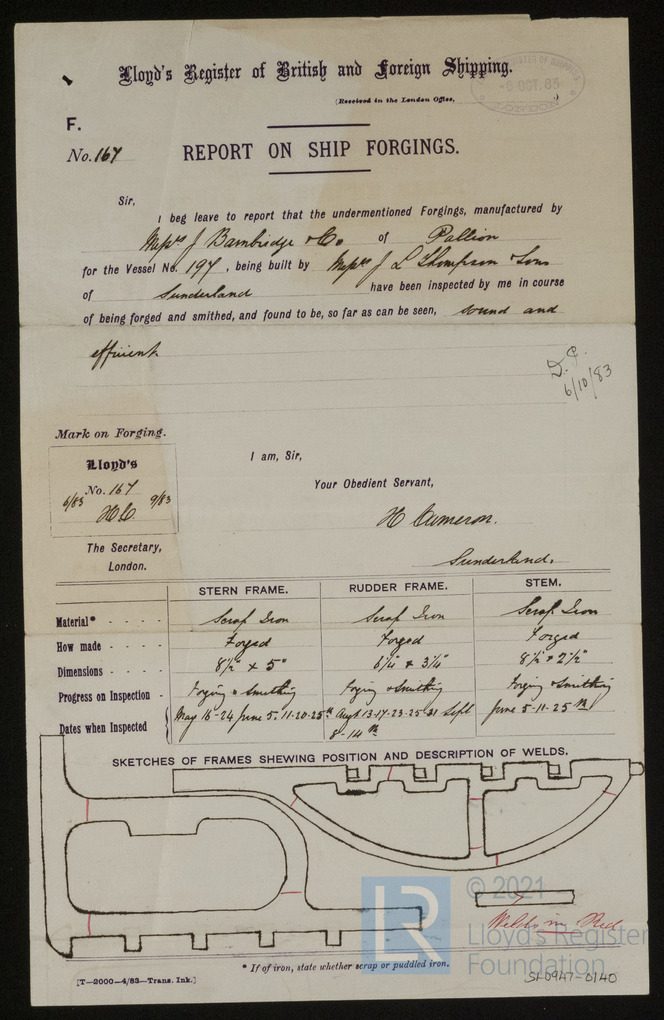 Lloyd's Register of British and Foreign Shipping.
(Received in the London Office,
6 OCT. 83
F.
No. 167
REPORT ON SHIP FORGINGS.
Sir,
I beg leave to report that the undermentioned Forgings, manufactured by
Messrs J Bambridge & Co of Pallion
for the Vessel No. 197, being built by Messrs J L Thompson & Sons
of Sunderland have been inspected by me in course
of being forged and smithed, and found to be, so far as can be seen, sound and
efficient
6/10/83
Mark on Forging.
Lloyd's
No. 167
6/83 H.C. 9/83
I am, Sir,
Your Obedient Servant,
H Cameron.
Sunderland.
The Secretary,
London.
STERN FRAME. RUDDER FRAME. STEM.
Material* - - - - Scrap Iron Scrap Iron Scrap Iron
How made - - - - Forged Forged Forged
Dimensions - - - - 8½" x 5" 6¼" x 3¼" 8½" x 2½"
Progress on Inspection - Forging & Smithing Forging & Smithing Forging & Smithing
Dates when Inspected { May 16-24 June 5-11-20-25th Augt 13-17-23-25-31 Sept 8-14th June 5-11-25th
SKETCHES OF FRAMES SHEWING POSITION AND DESCRIPTION OF WELDS.
Welds in Red
* If of iron, state whether scrap or puddled iron.
[T—2000—4/83—Trans. Ink.]
LR
© 2021
Lloyd's Register
Foundation
SL0947-0140